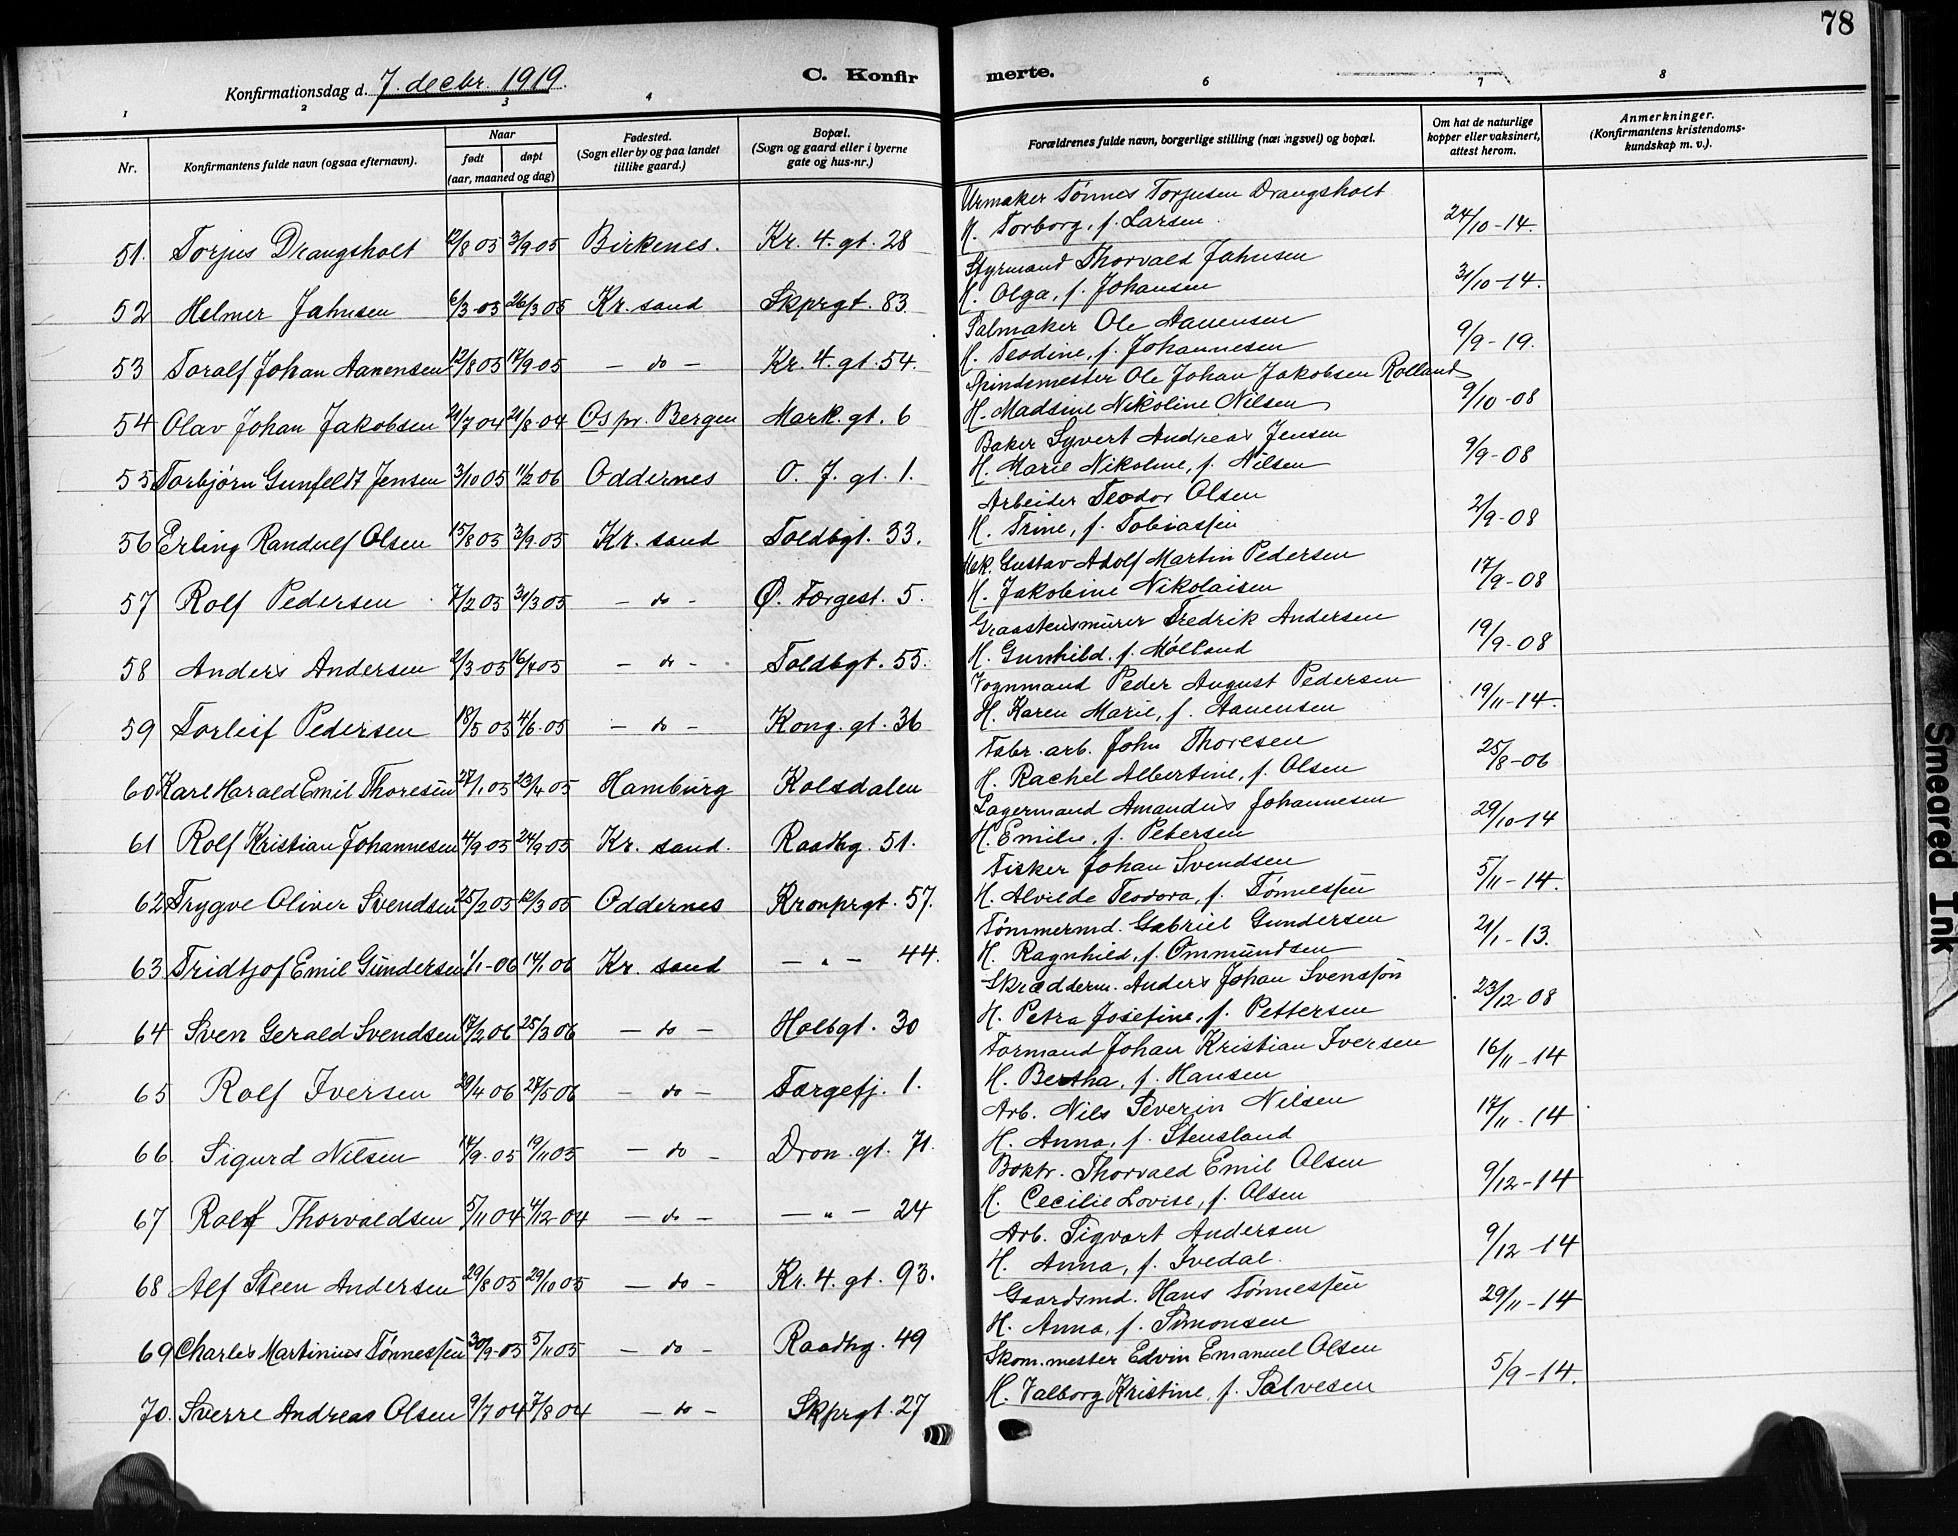 78
Konfirmationsdag d. 7. decbr. 1919.
C. Konfirmerte.
1 2 3 4 6 7 8
Nr.
Konfirmantens fulde navn (ogsaa efternavn).
Naar
født døpt
(aar, maaned og dag)
Fødested.
(Sogn eller by og paa landet
tillike gaard.)
Bopæl.
(Sogn og gaard eller i byerne
gate og hus-nr.)
Forældrenes fulde navn, borgerlige stilling (næringsvei) og bopæl.
Om hat de naturlige
kopper eller vaksinert,
attest herom.
Anmerkninger.
(Konfirmantens kristendoms-
kundskap m. v.).
51. Torjus Drangsholt 12/8 05 3/9 05 Birkenes. Kr. 4. gt. 28
Urmaker Tønnes Torjusen Drangsholt
H. Torborg, f. Larsen 24/10-14.
52 Helmer Jahnsen 6/3 05 26/3 05 Kr. sand Skprgt. 83
Styrmand Thorvald Jahnsen
H. Olga, f. Johansen 31/10-14.
53 Toralf Johan Aanensen 12/8 05 17/9 05 - do - Kr. 4. gt. 54.
Salmaker Ole Aanensen
H. Teodine, f. Johannesen 9/9-19.
54 Olav Johan Jakobsen 21/7 04 21/8 04 Os pr. Bergen Mark. gt. 6
Spindemester Ole Johan Jakobsen Rolland
H. Madsine Nikoline Nilsen 9/10-08
55 Torbjørn Gunfeldt Jensen 3/10 05 11/2 06 Oddernes O. J. gt. 1.
Baker Syvert Andreas Jensen
H. Marie Nikoline, f. Nilsen 9/9-08
56 Erling Randulf Olsen 15/8 05 3/9 05 Kr. sand Toldbgt. 33.
Arbeider Teodor Olsen
H. Trine, f. Tobiassen 2/9-08
57 Rolf Pedersen 7/2 05 31/3 05 - do - Ø. Færgest. 5.
Mek. Gustav Adolf Martin Pedersen
H. Jakobine Nikolaisen 17/9-08
58 Anders Andersen 2/3 05 16/4 05 - do - Toldbgt. 55.
Graastensmurer Fredrik Andersen
H. Gunhild. f. Mølland 19/9-08
59 Torleif Pedersen 18/5 05 4/6 05 - do - Kong. gt. 36
Vognmand Peder August Pedersen
H. Karen Marie, f. Aanensen 19/11-14.
60 Karl Harald Emil Thoresen 27/1 05 23/4 05 Hamburg Kolsdalen
Fabr. arb. John Thoresen
H. Rachel Albertine, f. Olsen 25/8-06
61 Rolf Kristian Johannesen 4/9 05 24/9 05 Kr. sand. Raadhg. 51.
Lagermand Amandus Johannesen
H. Emilie, f. Petersen 29/10-14
62 Trygve Oliver Svendsen 25/2 05 12/3 05 Oddernes Kronprgt. 57.
Fisker Johan Svendsen
H. Alvilde Teodora, f. Tønnessen 5/11-14.
63 Fridtjof Emil Gundersen 1/1-06 14/1 06 Kr. sand - " - 44.
Tømmermd. Gabriel Gundersen
H. Ragnhild, f. Ommundsen 21/1-13.
64 Sven Gerald Svendsen 17/2 06 25/3 06 - do - Holbgt. 30
Skrædderm. Anders Johan Svenssøn
H. Petra Josefine, f. Pettersen 23/12-08
65 Rolf Iversen 29/4 06 27/5 06 - do - Færgefj. 1.
Formand Johan Kristian Iversen
H. Bertha, f. Hansen 16/11-14
66 Sigurd Nilsen 14/9-05 19/11 05 - do - Dron. gt. 71.
Arb. Nils Severin Nilsen
H. Anna, f. Stensland 17/11-14
67 Ralf Thorvaldsen 5/11 04 4/12 04 - do - - " - 24
Boktr. Thorvald Emil Olsen
H. Cecilie Lovise, f. Olsen 9/12-14
68 Alf Steen Andersen 29/8 05 29/10 05 - do - Kr. 4. gt. 93.
Arb. Sigvart Andersen
H. Anna, f. Ivedal. 9/12-14
69 Charles Martinius Tønnessen 30/9-05 5/11 05 - do - Raadhg. 49
Gaardsmd. Hans Tønnessen
H. Anna, f. Simonsen 29/11-14
70. Sverre Andreas Olsen 9/7 04 7/8 04 - do - Skprgt. 27
Skom.mester Edvin Emanuel Olsen
H. Valborg Kristine, f. Salvesen 5/9-14.
Smeared Ink